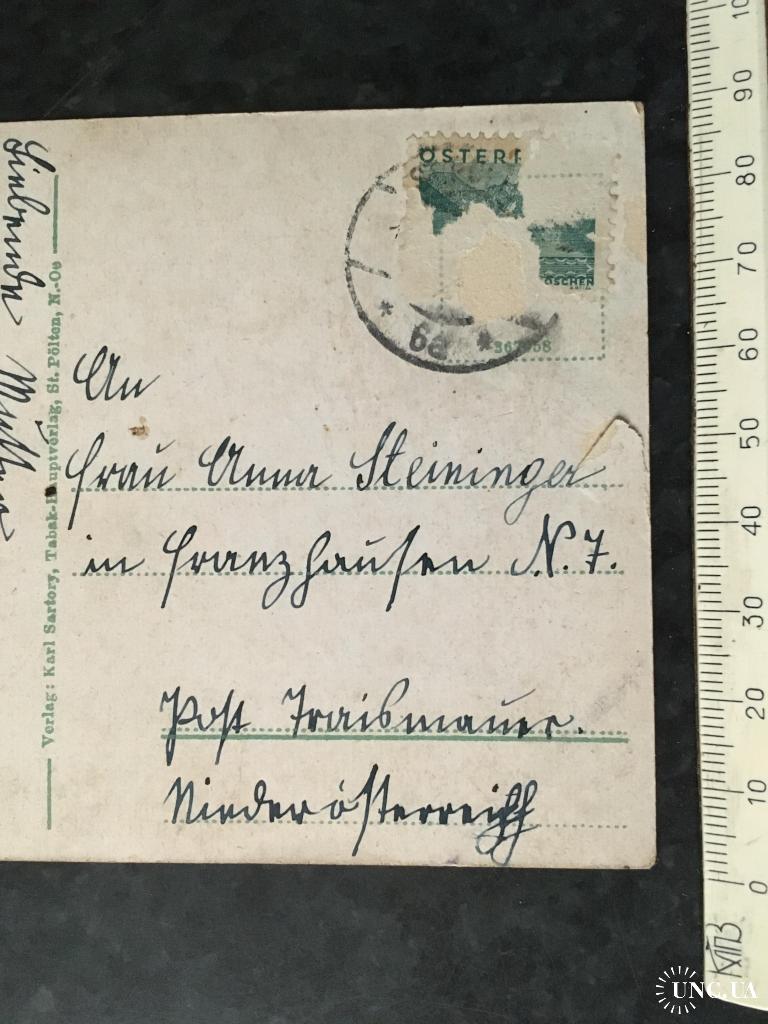 Liebende Mutter
Verlag: Karl Sartory, Tabak-Hauptverlag, St. Pölten, N.-Oe
ÖSTERR
OSCHEN
* 6a *
An
Frau Anna Steininger
in Franzhausen N. 7.
Post Traismauer.
Niederösterreich
100
90
80
70
60
50
40
30
20
10
0
UNC.UA